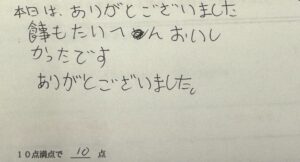 本日は、ありがとございました
食事もたいへん おいし
かったです
ありがとございました。
10点満点で 10 点